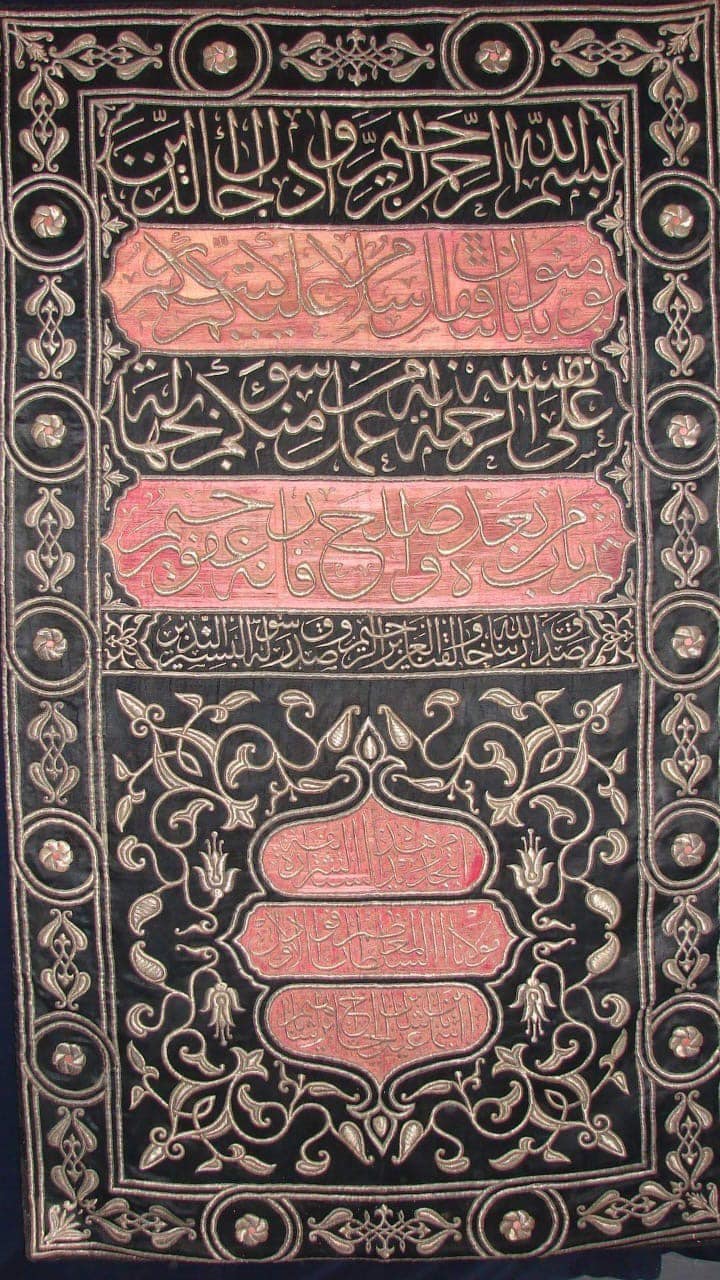 بسم الله الرحمن الرحيم وإذا جاءك الذين
يؤمنون بآياتنا فقل سلام عليكم كتب ربكم
على نفسه الرحمة أنه من عمل منكم سوءا بجهالة
ثم تاب من بعده وأصلح فأنه غفور رحيم
صدق الله ربنا وخالقنا العزيز الرحيم وصدق رسوله البشير النذير
بتجديد هذه الستارة الشريفة
مولانا السلطان المعظم فؤاد الأول